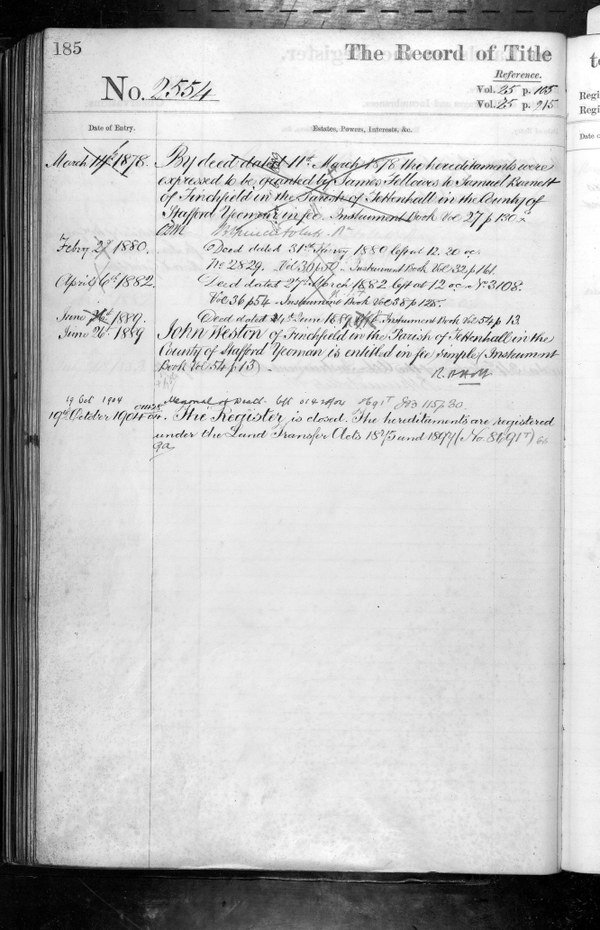 185
The Record of Title
Reference.
No. 2554
Vol. 25 p. 185
Vol. 25 p. 915
Date of Entry.
Estates, Powers, Interests, &c.
March 14th 1878. By deed dated 11th March 1878 the hereditaments were
expressed to be granted by James Fellowes to Samuel
of Finchfield in the Parish of Tettenhall in the County of
Stafford Yeoman in fee. Instrument Book Vol 27 p 130
Febry 1880. Deed dated 31st 1880 left at 12.20 oc
No 2829. Vol 36 p 50 Instrument Book Vol 32 p 161.
April 6th 1882. Deed dated 27th March 1882 left at 12 oc No 3108.
Vol 36 p 54 Instrument Book Vol 38 p 128.
June 1889. Deed dated 21st June 1889 Instrument Book Vol 54 p 13
June 26th 1889 John Weston of Finchfield in the Parish of Tettenhall in the
County of Stafford Yeoman is entitled in fee simple (Instrument
Book Vol 54 p 13)
19 Oct 1904 Memorial of Deed 115 p 30.
19th October 1904 The Register is closed. The hereditaments are registered
under the Land Transfer Acts 1875 and 1897 (No. 86917)
to
Regi
Regi
Date o